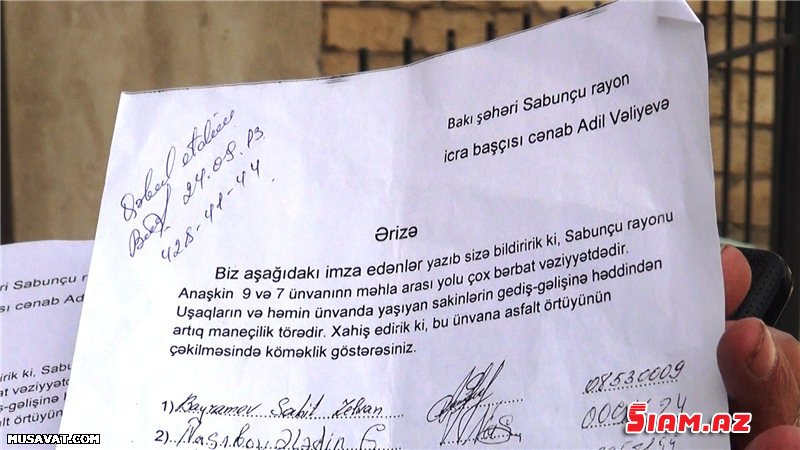 Bakı şəhəri Sabunçu rayon
icra başçısı cənab Adil Vəliyevə
Qəbul etdim
24.09.13
428-41-44
Ərizə
Biz aşağıdakı imza edənlər yazıb sizə bildiririk ki, Sabunçu rayonu
Anaşkin 9 və 7 ünvanınn məhlə arası yolu çox bərbat vəziyyətdədir.
Uşaqların və həmin ünvanda yaşıyan sakinlərin gediş-gəlişinə həddindən
artıq maneçilik törədir. Xahiş edirik ki, bu ünvana asfalt örtüyünün
çəkilməsində köməklik göstərəsiniz.
1) Bayramov Sahil 08530009
2)
ni Sabunçu rayon
sı cənab Adil
irik ki, Sabu
vəziyyətdə
ş-gəlişinə
falt örtüyü
SİAM.AZ
MUSAVAT.COM